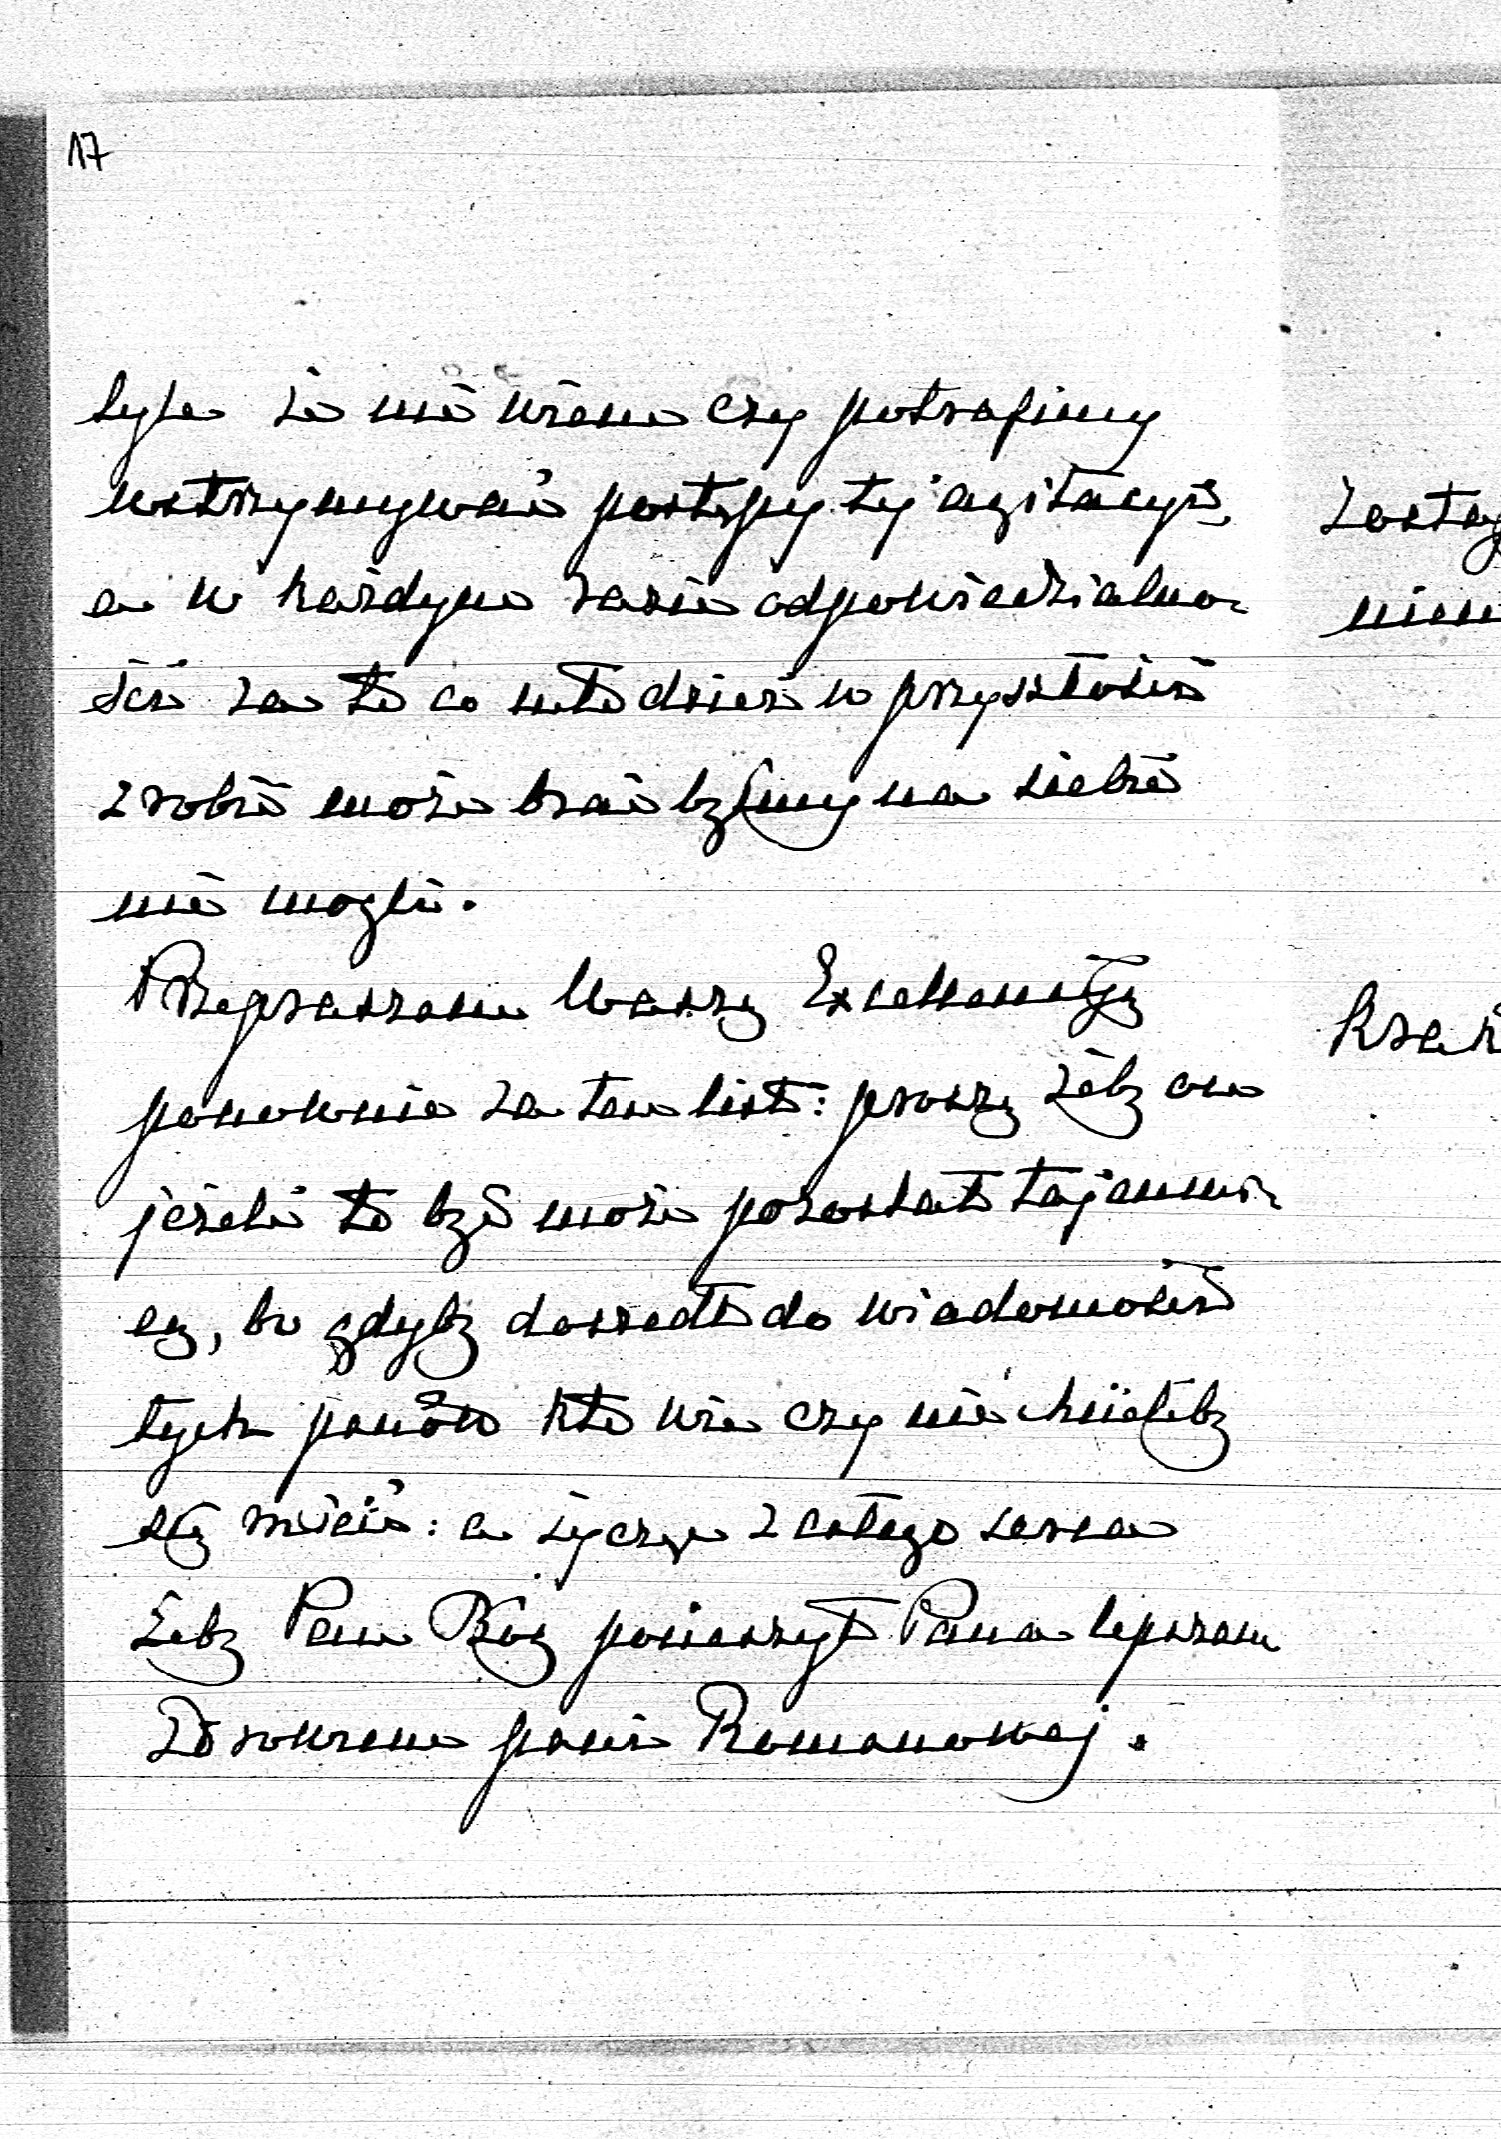 17
tyle że nie wiem czy potrafimy
wstrzymywać postępy tej agitacyi,
a w każdym razie odpowiedzialno-
ści za to co młodzież w przyszłości
zrobić może brać byśmy na siebie
nie mogli.
Przepraszam Waszą Excellencyę
ponownie za ten list: proszę żeby on
jeżeli to być może pozostał tajemni-
cą, bo gdyby doszedł do wiadomości
tych panów kto wie czy nie chcieliby
się mścić: a życzę z całego serca
żeby Pan Bóg pocieszył Pana lepszem
Zdrowiem pani Romanowej.